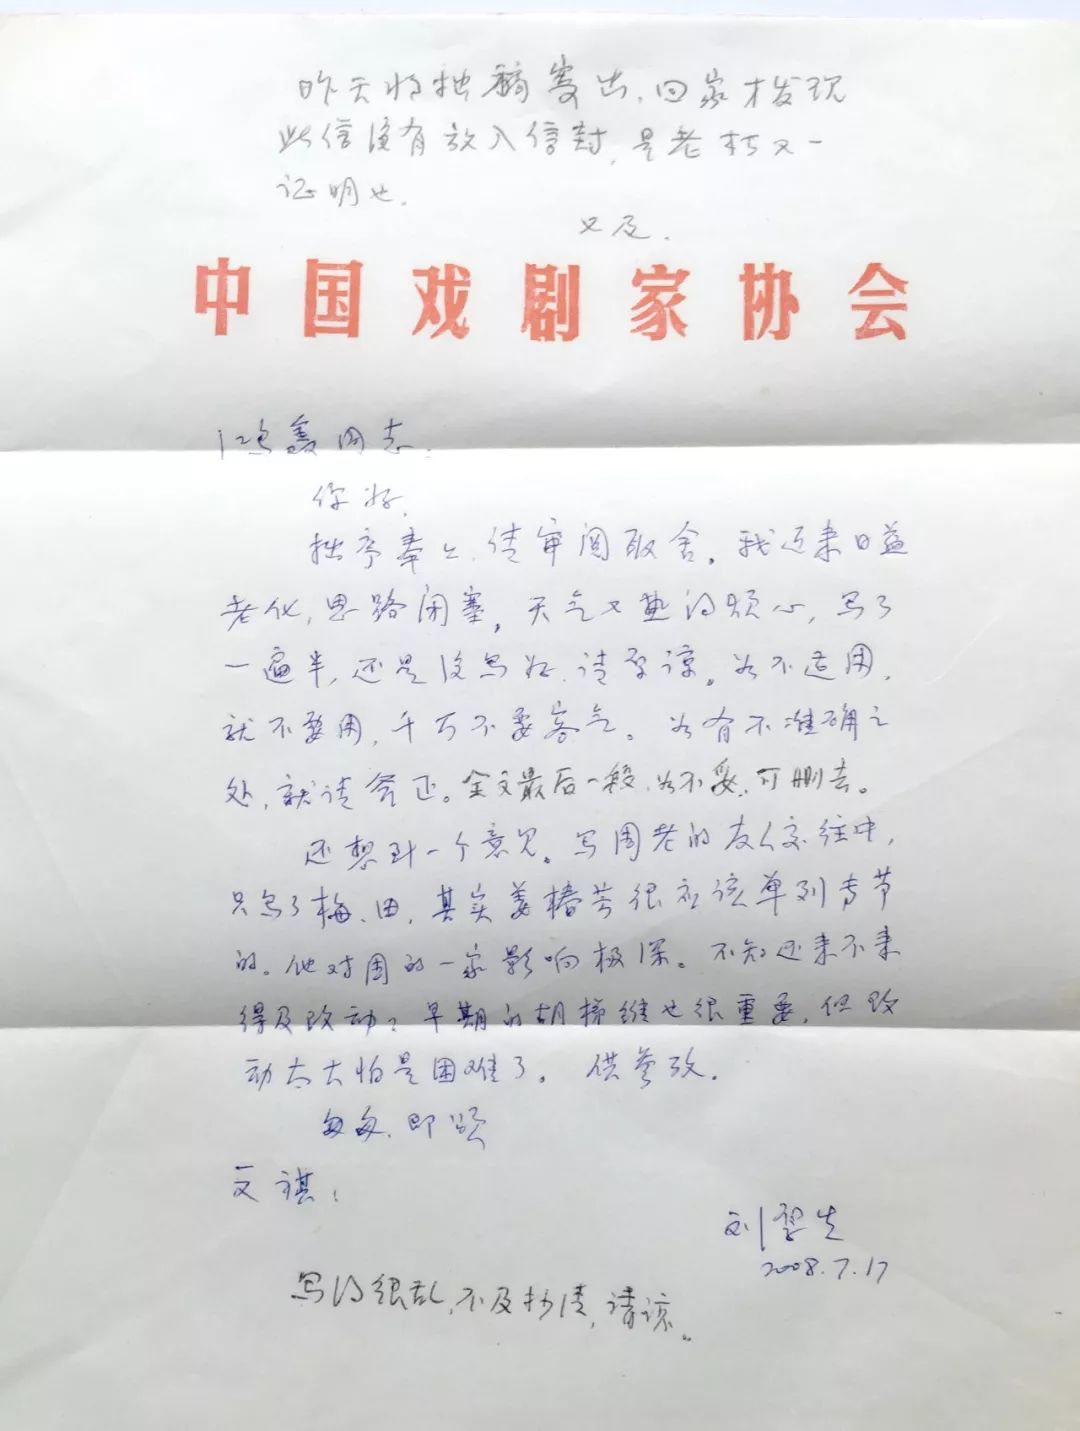 昨天将拙稿寄出，回家才发现
此信没有放入信封，是老朽又一
证明也．
又及．
中国戏剧家协会
鸿鑫同志：
你好，
拙序奉上，请审阅取舍。我近来日益
老化，思路闭塞，天气又热得烦心，写了
一遍半，还是没写好，请原谅。如不适用，
就不要用，千万不要客气。如有不准确之
处，就请斧正。全文最后一段，如不妥，可删去。
还想到一个意见。写周老的友人交往中，
只写了梅、田，其实姜椿芳很应该单列专节
的。他对周的一家影响极深。不知还来不来
得及改动？早期的胡梯维也很重要，但改
动太大怕是困难了。供参改．
匆匆，即颂
文祺！
刘厚生
2008.7.17
写得很乱，不及抄清，请谅。